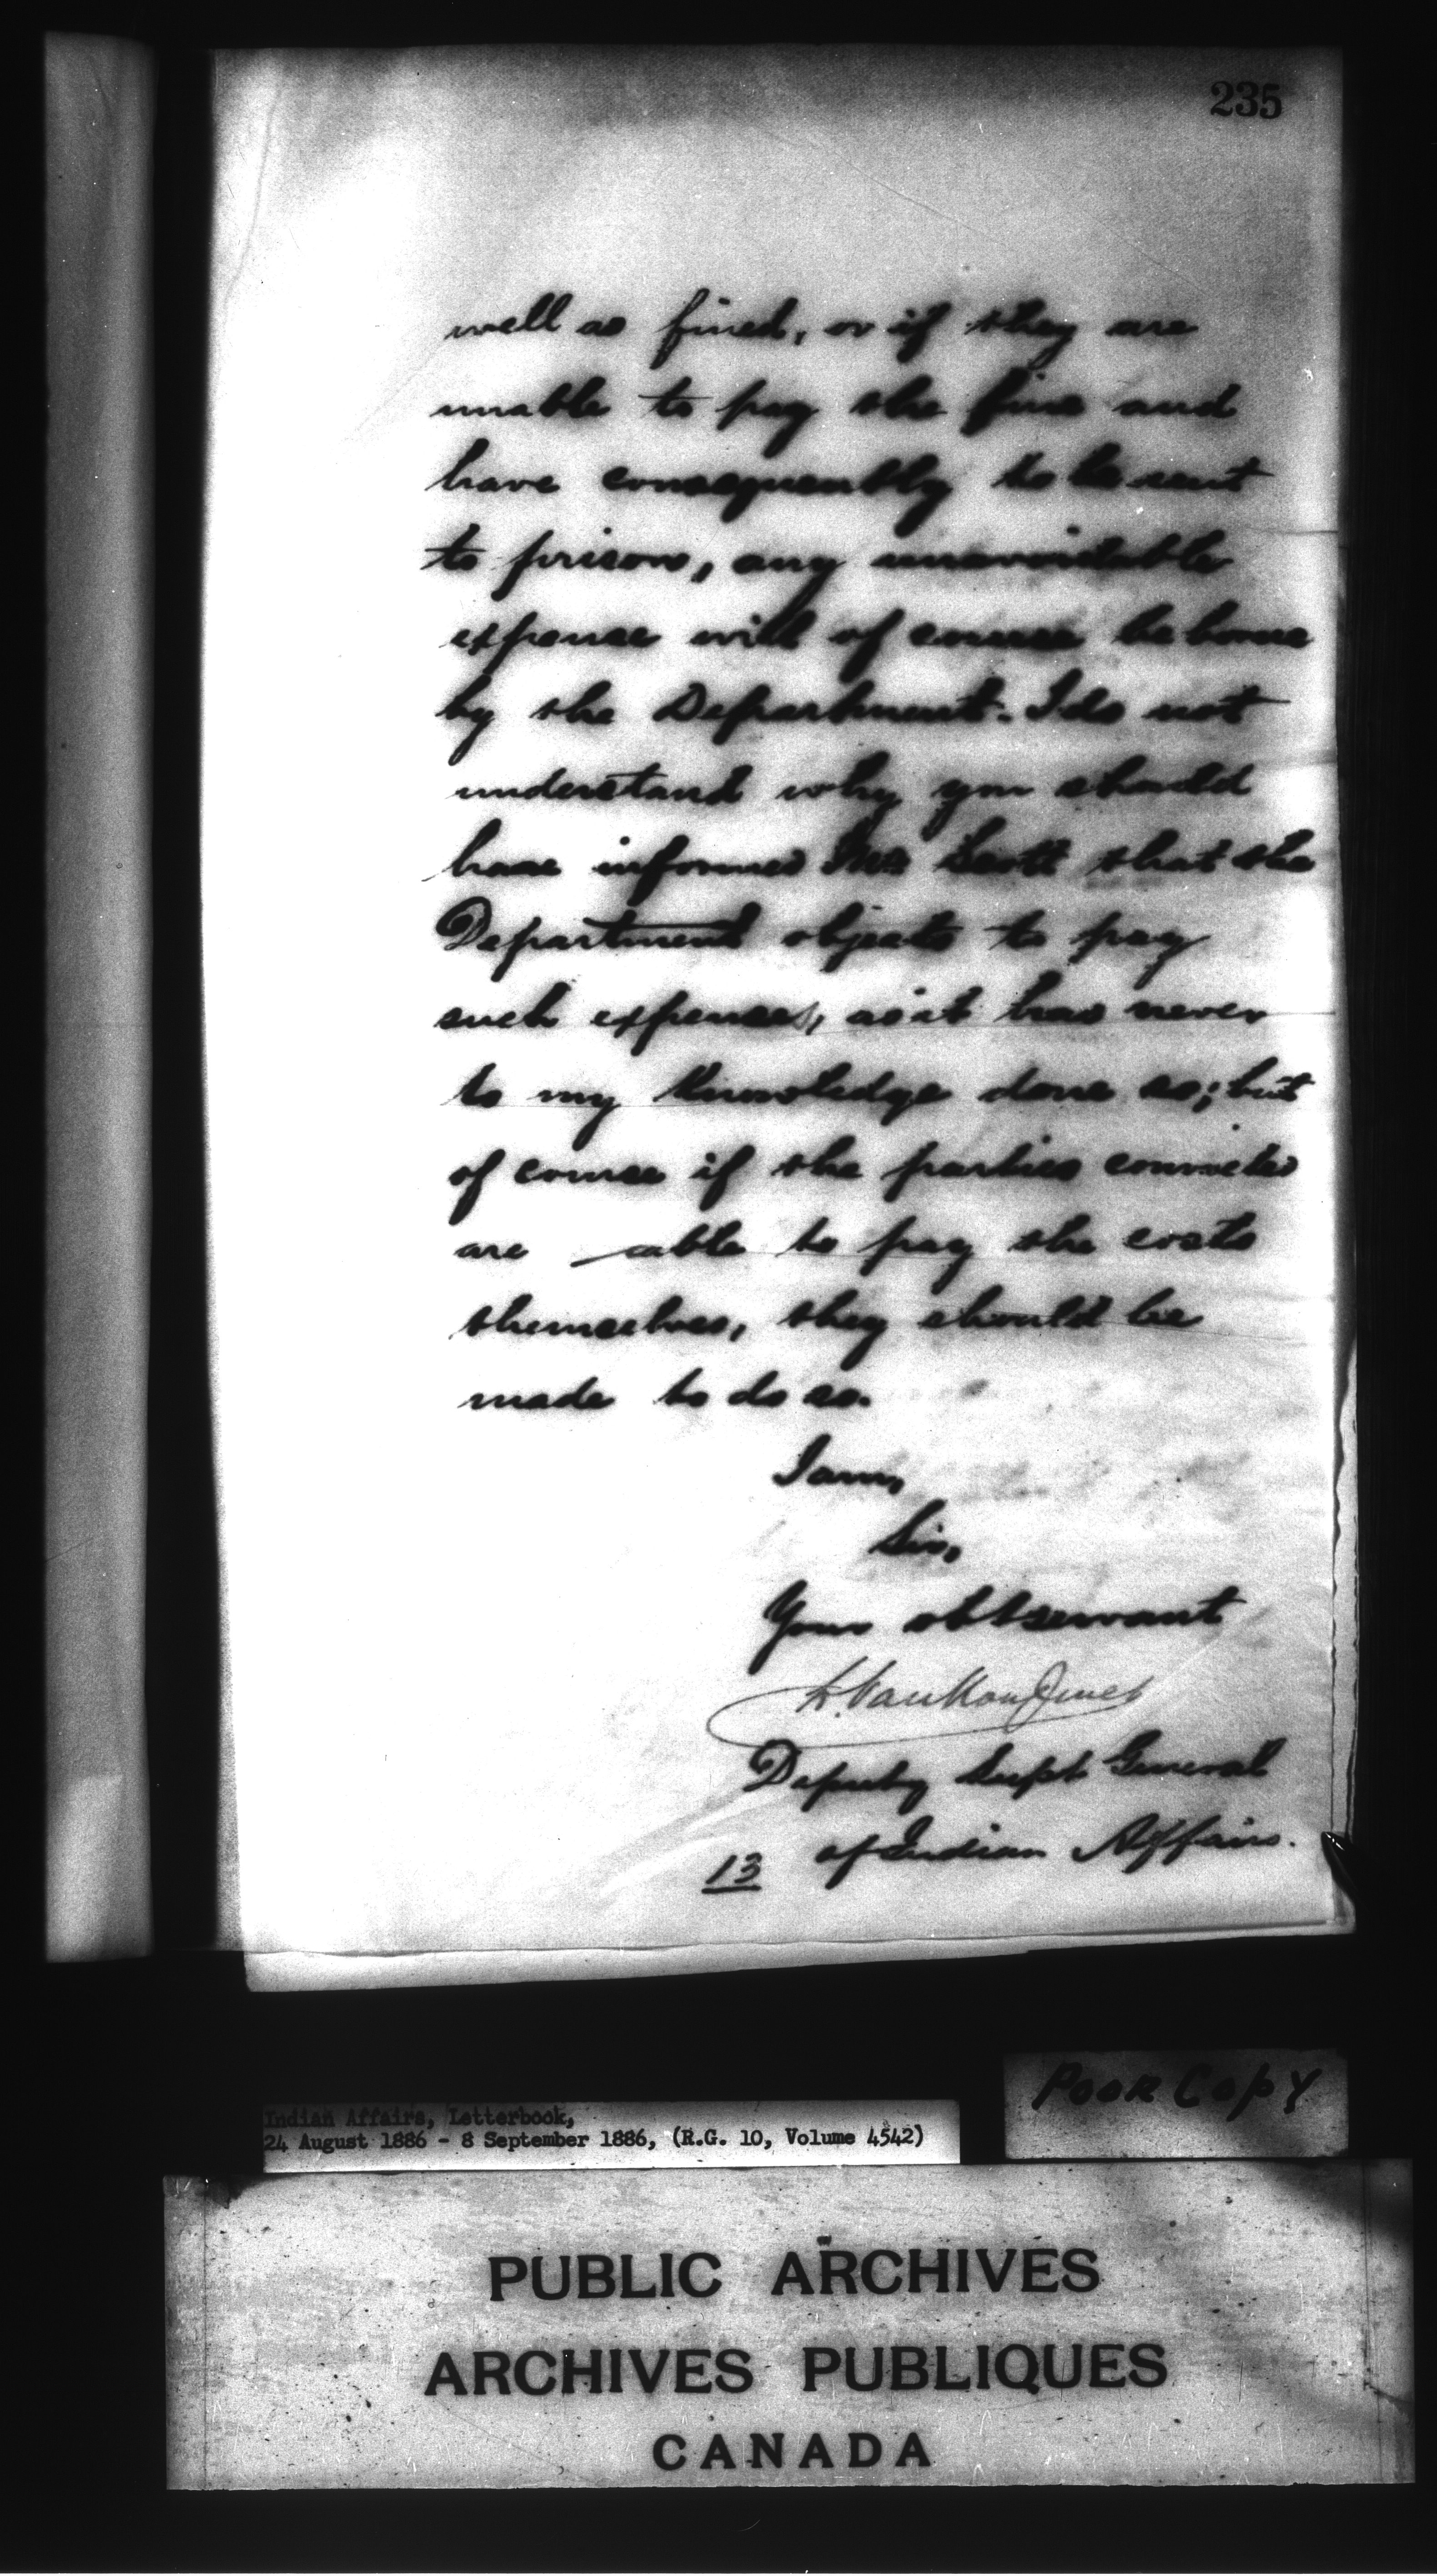 235
well as fined, or if they are
unable to pay the fine and
have consequently to be sent
to prison, any unavoidable
expense will of course be borne
by the Department. I do not
understand why you should
have informed Mr. Scott that the
Department objects to pay
such expenses, as it has never
to my knowledge done so; but
of course if the parties convicted
are able to pay the costs
themselves, they should be
made to do so.
I am,
Sir,
Your obt servant
L. VanKoughnet
Deputy Supt General
of Indian Affairs.
13
Poor Copy
Indian Affairs, Letterbook,
24 August 1886 - 8 September 1886, (R.G. 10, Volume 4542)
PUBLIC ARCHIVES
ARCHIVES PUBLIQUES
CANADA